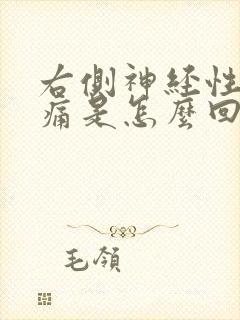 右側神経性
痛是怎麼回
毛領